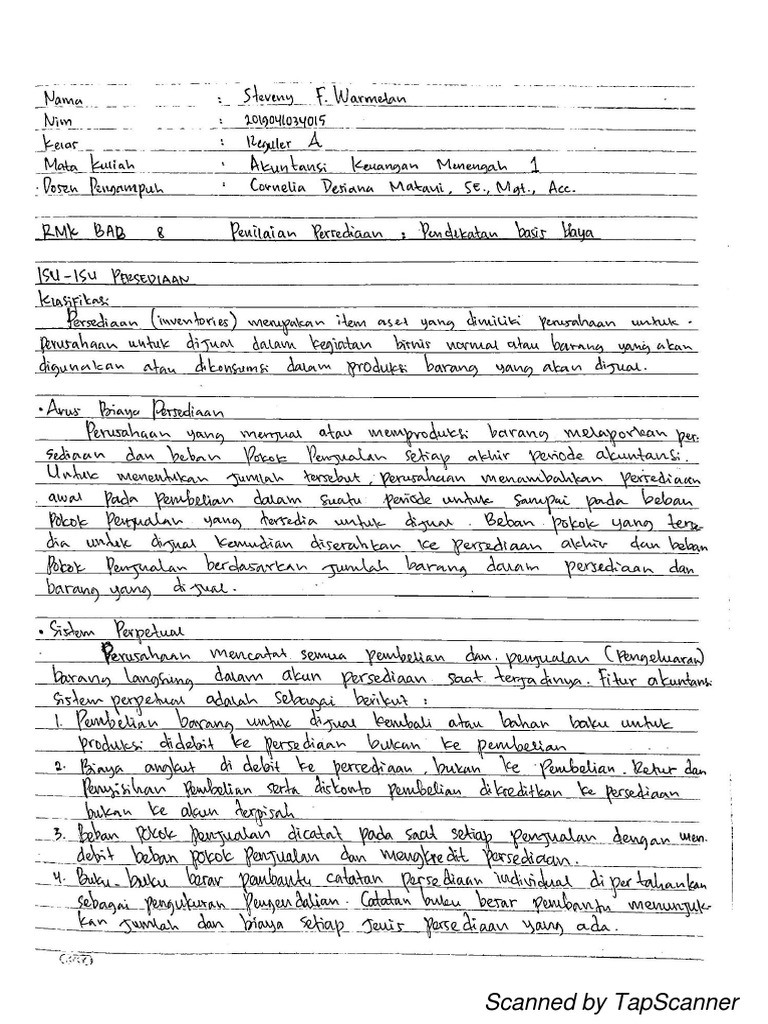 Nama : Steveny F. Warmetan
Nim : 2019041034015
Kelas : Reguler A
Mata Kuliah : Akuntansi Keuangan Menengah 1
Dosen Pengampuh : Cornelia Desiana Matani, SE., Mgt., Acc.
RMK BAB 8 Penilaian Persediaan : Pendekatan basis biaya
ISU-ISU PERSEDIAAN
Klasifikasi
Persediaan (inventories) merupakan item aset yang dimiliki perusahaan untuk
perusahaan untuk dijual dalam kegiatan bisnis normal atau barang yang akan
digunakan atau dikonsumsi dalam produksi barang yang akan dijual.
• Arus Biaya Persediaan
Perusahaan yang menjual atau memproduksi barang melaporkan per-
sediaan dan beban Pokok Penjualan setiap akhir periode akuntansi.
Untuk menentukan jumlah tersebut, perusahaan menambahkan persediaan
awal pada pembelian dalam suatu periode untuk sampai pada beban
Pokok Penjualan yang tersedia untuk dijual. Beban pokok yang terse-
dia untuk dijual kemudian diserahkan ke persediaan akhir dan beban
Pokok Penjualan berdasarkan jumlah barang dalam persediaan dan
barang yang dijual.
• Sistem Perpetual
Perusahaan mencatat semua pembelian dan penjualan (Pengeluaran)
barang langsung dalam akun persediaan saat terjadinya. Fitur akuntansi
sistem perpetual adalah sebagai berikut :
1. Pembelian barang untuk dijual kembali atau bahan baku untuk
produksi didebit ke persediaan bukan ke pembelian
2. Biaya angkut di debit ke persediaan, bukan ke Pembelian. Retur dan
Penyisihan Pembelian serta diskonto pembelian dikreditkan ke persediaan
bukan ke akun terpisah
3. Beban pokok penjualan dicatat pada saat setiap penjualan dengan men-
debit beban pokok Penjualan dan mengkredit persediaan.
4. Buku-buku besar pembantu catatan persediaan individual dipertahankan
sebagai pengukuran Pengendalian. Catatan buku besar pembantu menunjuk-
kan jumlah dan biaya setiap jenis persediaan yang ada.
Scanned by TapScanner